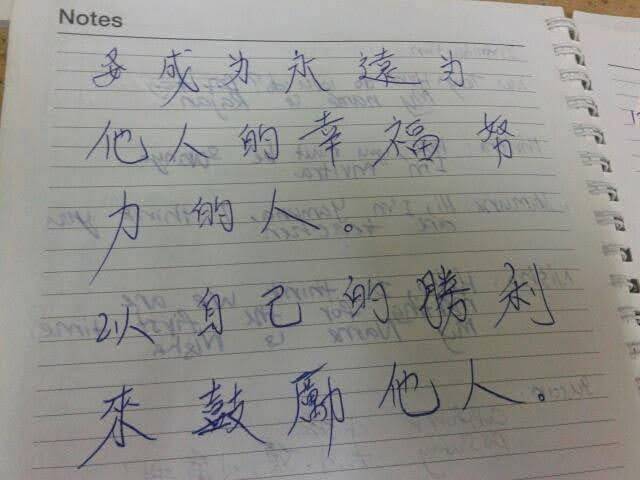 Notes
要成为永遠为
他人的幸福努
力的人。
以自己的勝利
來鼓勵他人。